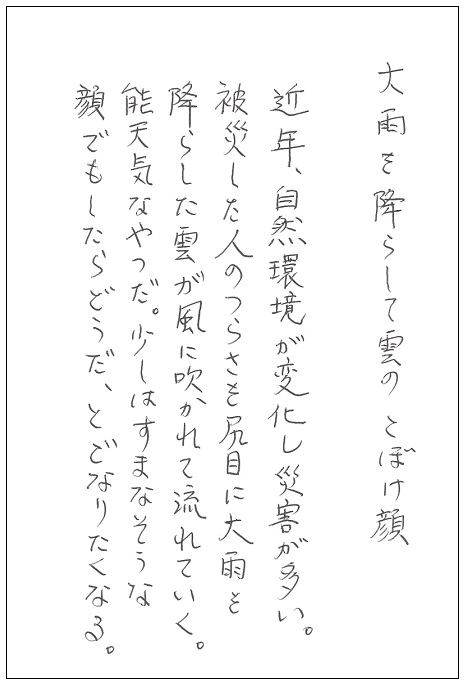 大雨を降らして雲の とぼけ顔
近年、自然環境が変化し災害が多い。
被災した人のつらさを尻目に大雨を
降らした雲が風に吹かれて流れていく。
能天気なやつだ。少しはすまなそうな
顔でもしたらどうだ、とごなりたくなる。